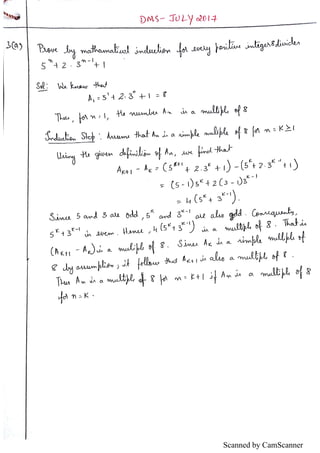 DMS - JULY 2017
3(a) Prove by mathematical induction for every positive integer 8 divides
5^n + 2 · 3^{n-1} + 1
Sol: We know that
A₁ = 5¹ + 2·3⁰ + 1 = 8
Thus, for n = 1, the number An is a multiple of 8
Induction Step : Assume that An is a simple multiple of 8 for n = K ≥ 1
Using the given definition of An, we find that
A_{K+1} - A_K = (5^{K+1} + 2·3^K + 1) - (5^K + 2·3^{K-1} + 1)
= (5-1)5^K + 2(3-1)3^{K-1}
= 4(5^K + 3^{K-1}).
Since 5 and 3 are odd, 5^K and 3^{K-1} are also odd. Consequently,
5^K + 3^{K-1} is even. Hence, 4(5^K + 3^{K-1}) is a multiple of 8. That is
(A_{K+1} - A_K) is a multiple of 8. Since A_K is a simple multiple of
8 by assumption, it follows that A_{K+1} is also a multiple of 8.
Thus An is a multiple of 8 for n = K+1 if An is a multiple of 8
for n = K.
Scanned by CamScanner